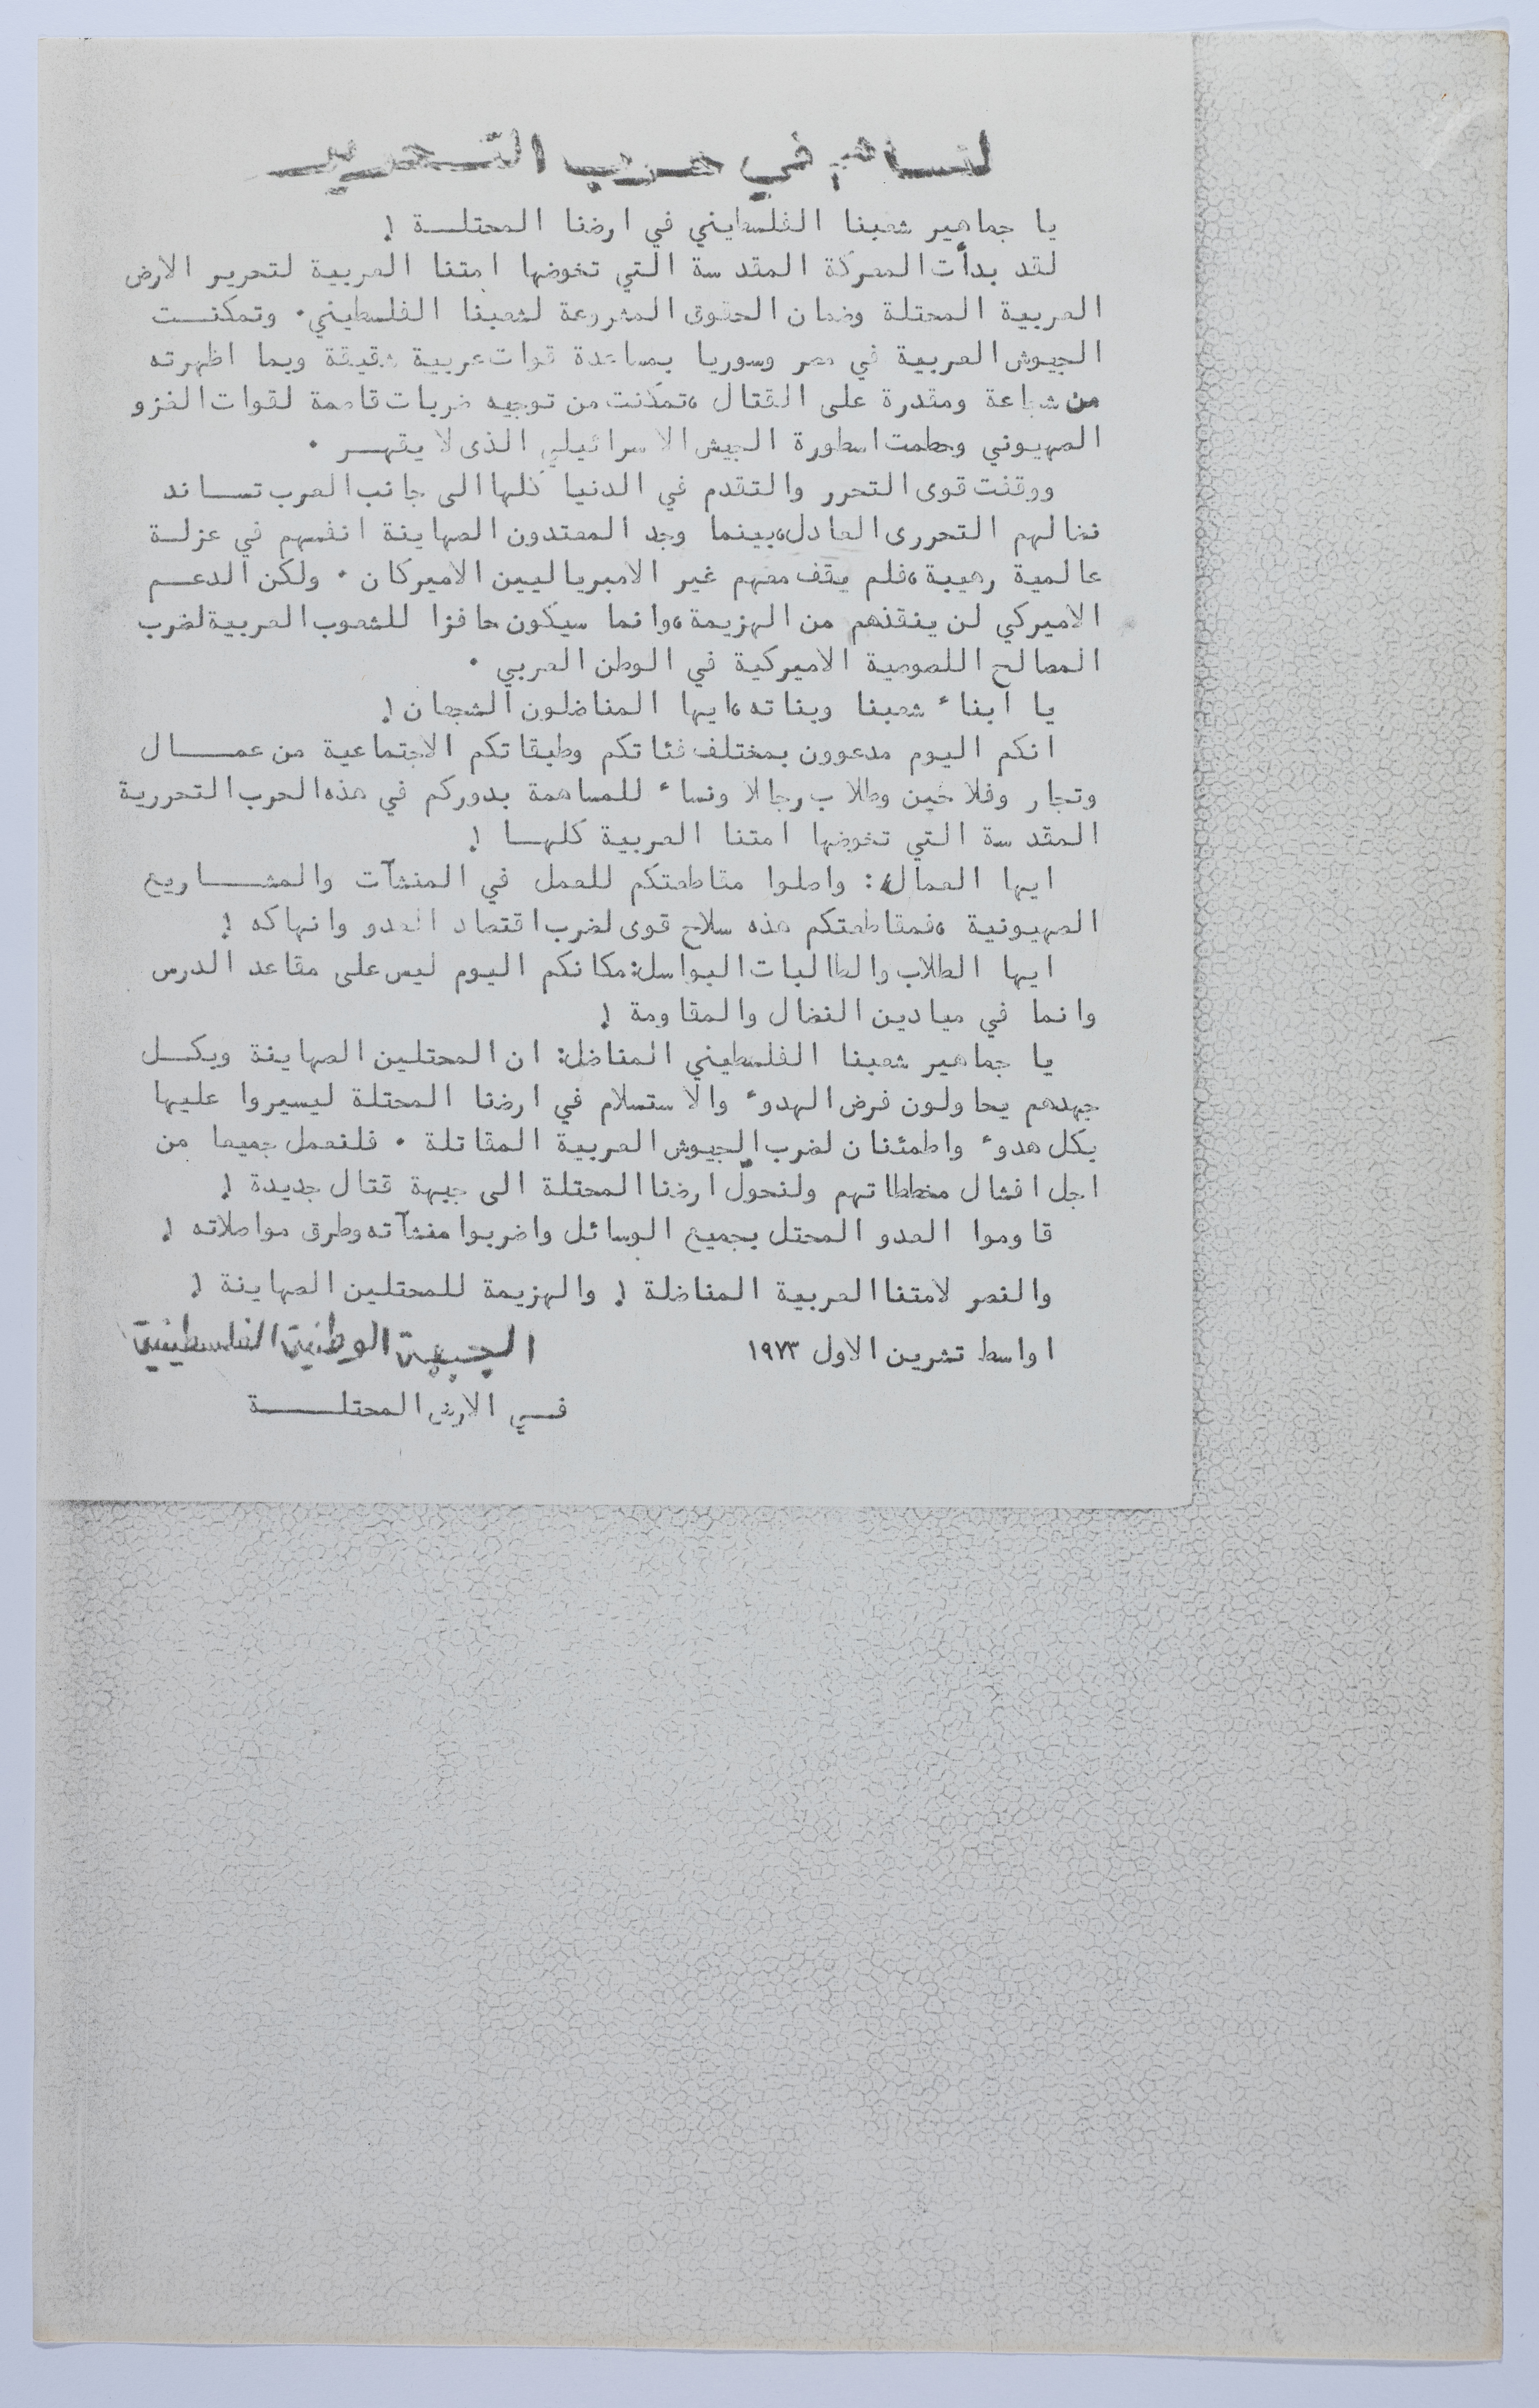 لنساهم في حرب التحرير
يا جماهير شعبنا الفلسطيني في ارضنا المحتلــة !
لقد بدأت المعركة المقدسة التي تخوضها امتنا العربية لتحرير الارض
العربية المحتلة وضمان الحقوق المشروعة لشعبنا الفلسطيني. وتمكنــت
الجيوش العربية في مصر وسوريا بمساعدة قوات عربية شقيقة وبما اظهرته
من شجاعة ومقدرة على القتال ،تمكنت من توجيه ضربات قاصمة لقوات الغزو
الصهيوني وحطمت اسطورة الجيش الاسرائيلي الذى لا يقهــر .
ووقفت قوى التحرر والتقدم في الدنيا كلها الى جانب العرب تســاند
نضالهم التحررى العادل،بينما وجد المعتدون الصهاينة انفسهم في عزلــة
عالمية رهيبة ،فلم يقف معهم غير الامبرياليين الاميركان . ولكن الدعــم
الاميركي لن ينقذهم من الهزيمة ،وانما سيكون حافزا للشعوب العربية لضرب
المصالح اللصوصية الاميركية في الوطن العربي .
يا ابناء شعبنا وبناته ،ايها المناضلون الشجعان !
انكم اليوم مدعوون بمختلف فئاتكم وطبقاتكم الاجتماعية من عمــــال
وتجار وفلاحين وطلاب رجالا ونساء للمساهمة بدوركم في هذه الحرب التحررية
المقدسة التي تخوضها امتنا العربية كلهــا !
ايها العمال : واصلوا مقاطعتكم للعمل في المنشآت والمشــــاريع
الصهيونية ،فمقاطعتكم هذه سلاح قوى لضرب اقتصاد العدو وانهاكه !
ايها الطلاب والطالبات البواسل: مكانكم اليوم ليس على مقاعد الدرس
وانما في ميادين النضال والمقاومة !
يا جماهير شعبنا الفلسطيني المناضل: ان المحتلين الصهاينة وبكــل
جهدهم يحاولون فرض الهدوء والاستسلام في ارضنا المحتلة ليسيروا عليها
بكل هدوء واطمئنان لضرب الجيوش العربية المقاتلة . فلنعمل جميعا من
اجل افشال مخططاتهم ولنحوّل ارضنا المحتلة الى جبهة قتال جديدة !
قاوموا العدو المحتل بجميع الوسائل واضربوا منشآته وطرق مواصلاته !
والنصر لامتنا العربية المناضلة ! والهزيمة للمحتلين الصهاينة !
اواسط تشرين الاول ١٩٧٣
الجبهة الوطنية الفلسطينية
فــي الارض المحتلــــة